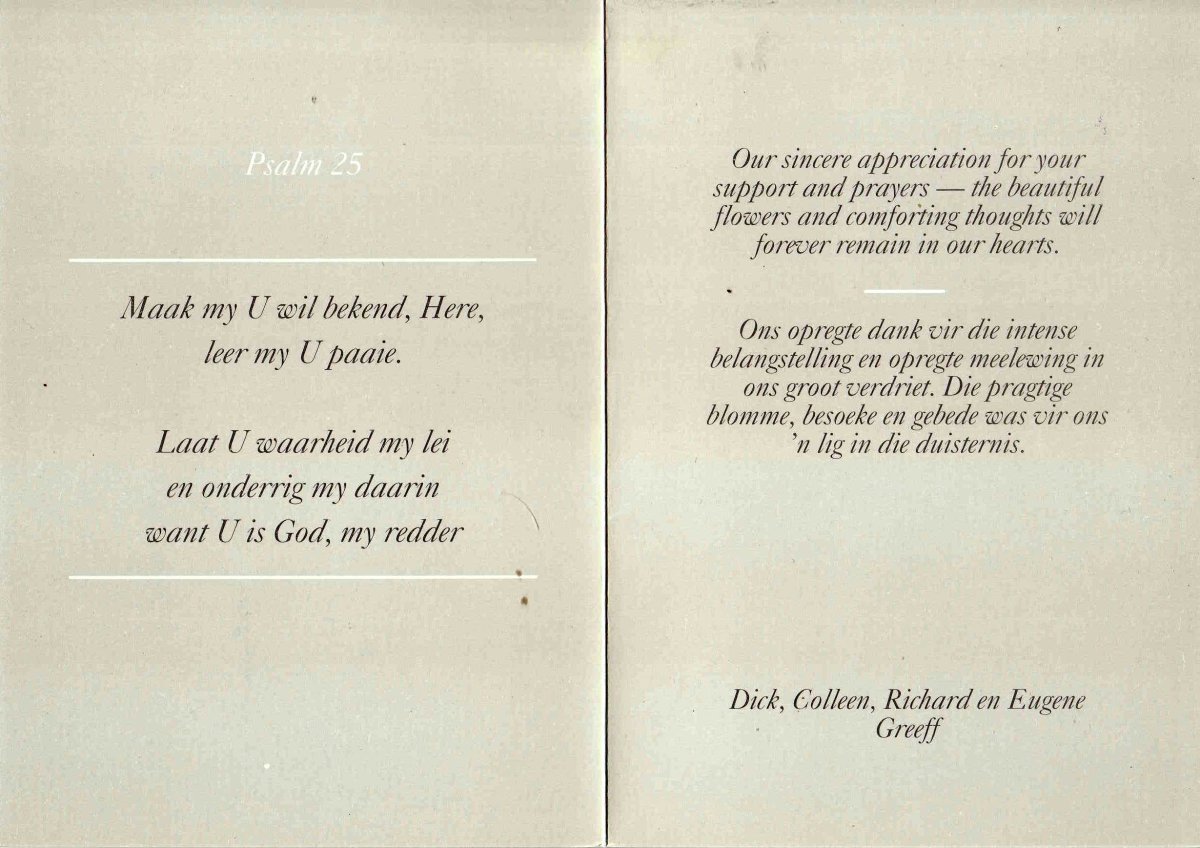 Psalm 25
Maak my U wil bekend, Here,
leer my U paaie.
Laat U waarheid my lei
en onderrig my daarin
want U is God, my redder
Our sincere appreciation for your
support and prayers — the beautiful
flowers and comforting thoughts will
forever remain in our hearts.
Ons opregte dank vir die intense
belangstelling en opregte meelewing in
ons groot verdriet. Die pragtige
blomme, besoeke en gebede was vir ons
'n lig in die duisternis.
Dick, Colleen, Richard en Eugene
Greeff